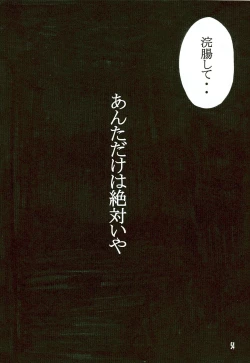 浣腸して・・
あんただけは絶対いや
54